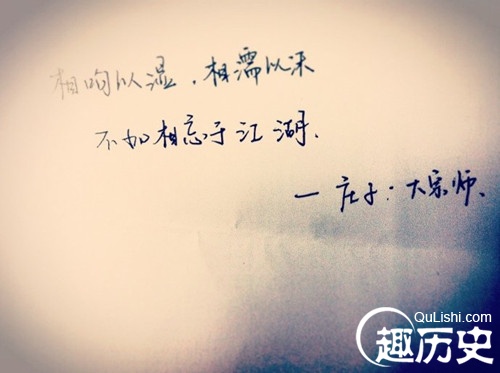 相呴以湿，相濡以沫
不如相忘于江湖.
—庄子：大宗师.
QuLishi.com
趣历史